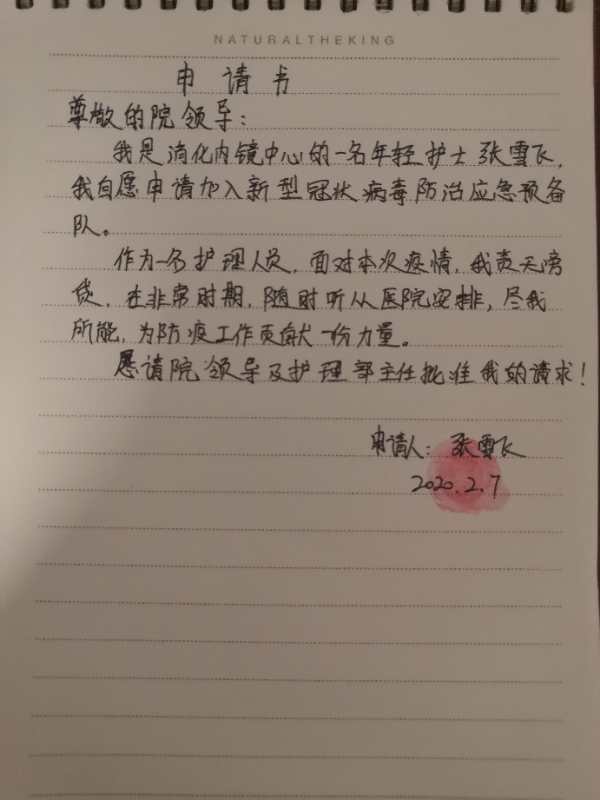 NATURALTHEKING
申请书
尊敬的院领导：
我是消化内镜中心的一名年轻护士张雪飞，
我自愿申请加入新型冠状病毒防治应急预备
队。
作为一名护理人员，面对本次疫情，我责无旁
贷，在非常时期，随时听从医院安排，尽我
所能，为防疫工作贡献一份力量。
恳请院领导及护理部主任批准我的请求！
申请人：张雪飞
2020.2.7